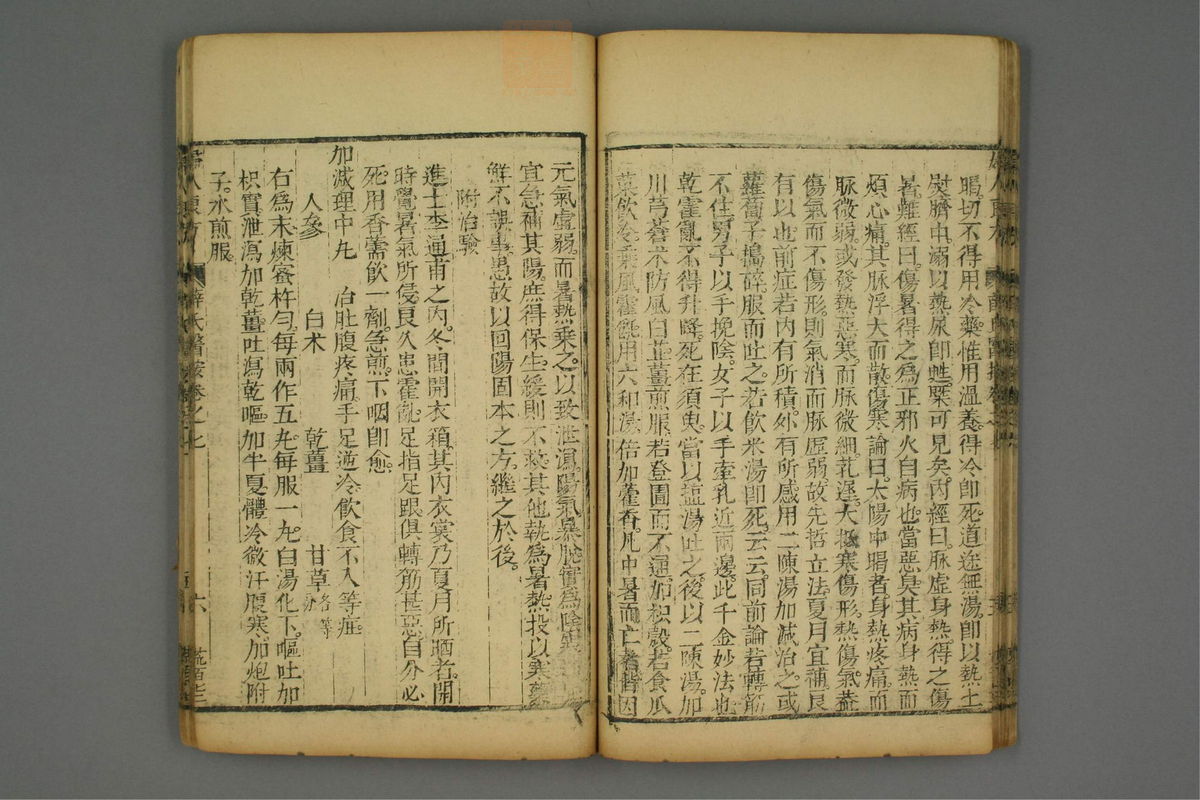 暍切不得用冷藥惟用溫養得冷即死道途無湯即以熱土
熨臍中溺以熱尿即甦槩可見矣內經曰脉虛身熱得之傷
暑難經曰傷暑得之為正邪火自病也當惡臭其病身熱而
煩心痛其脉浮大而散傷寒論曰太陽中暍者身熱疼痛而
脉微弱或發熱惡寒而脉微細芤遲大抵寒傷形熱傷氣蓋
傷氣而不傷形則氣消而脉虛弱故先哲立法夏月宜補良
有以也前症若內有所積外有所感用二陳湯加減治之或
蘿蔔子搗碎服而吐之若飲米湯即死云云同前論若轉筋
不住男子以手挽陰女子以手牽乳近兩邊此千金妙法也
乾霍亂不得升降死在須臾當以塩湯吐之後以二陳湯加
川芎蒼术防風白芷薑煎服若登圊而不通加枳殼若食瓜
菓飲冷乘風霍亂用六和湯倍加藿香凡中暑而亡者皆因
元氣虛弱而暑熱乘之以致泄瀉陽氣暴脫實為陰寒
宜急補其陽庶得保生緩則不救其他執為暑熱投以寒藥
鮮不誤事愚故以回陽固本之方繼之於後
附治驗
進士李通甫之內冬間開衣箱其內衣裳乃夏月所晒者開
時覺暑氣所侵良久患霍亂足指足跟俱轉筋甚惡自分必
死用香薷飲一劑急煎下咽即愈
加減理中丸　治肚腹疼痛手足逆冷飲食不入等症
人參　白术　乾薑　甘草各等分
右為末煉蜜杵勻每兩作五丸每服一丸白湯化下嘔吐加
枳實泄瀉加乾薑吐瀉乾嘔加半夏體冷微汗腹寒加炮附
子水煎服
婦人良方 薛氏醫按卷之七 六